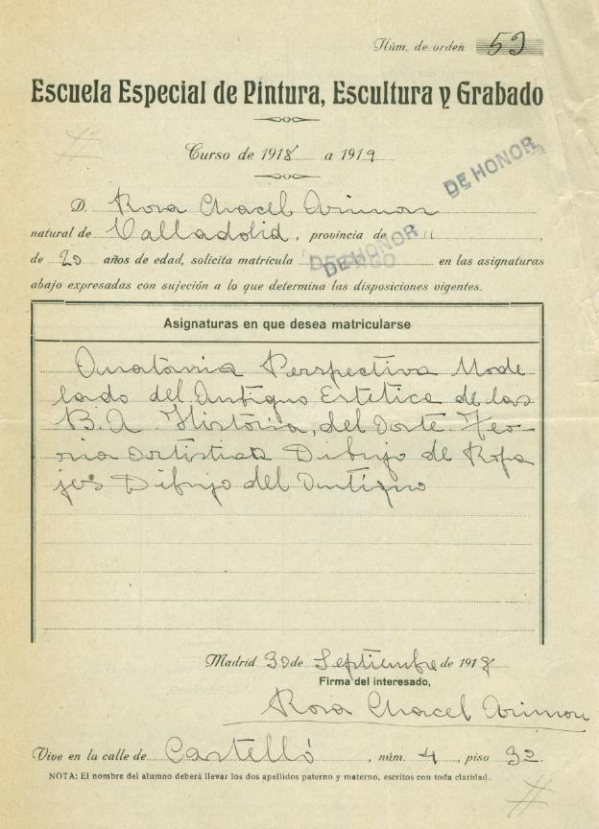 Núm. de orden 59
Escuela Especial de Pintura, Escultura y Grabado
Curso de 1918 a 1919
DE HONOR
D. Rosa Chacel Arimon
natural de Valladolid, provincia de "
DE HONOR
de 20 años de edad, solicita matrícula en las asignaturas
abajo expresadas con sujeción a lo que determina las disposiciones vigentes.
Asignaturas en que desea matricularse
Anatomia Perspectiva Mode
lado del Antiguo Estetica de las
B. A. Historia, del Arte Teo-
ria Artistica Dibujo de Ropa
jes Dibujo del Antiguo
Madrid 30 de Septiembre de 1918
Firma del interesado,
Rosa Chacel Arimon
Vive en la calle de Castelló, núm. 4, piso 3º
NOTA: El nombre del alumno deberá llevar los dos apellidos paterno y materno, escritos con toda claridad.